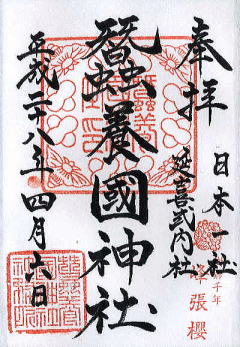 奉拝
日本一社
延喜式内社
千年
峰張櫻
蠶養國神社
平成二十八年四月六日